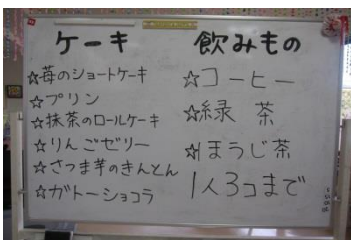 ケーキ
☆苺のショートケーキ
☆プリン
☆抹茶のロールケーキ
☆りんごゼリー
☆さつま芋のきんとん
☆ガトーショコラ
飲みもの
☆コーヒー
☆緑茶
☆ほうじ茶
1人3コまで